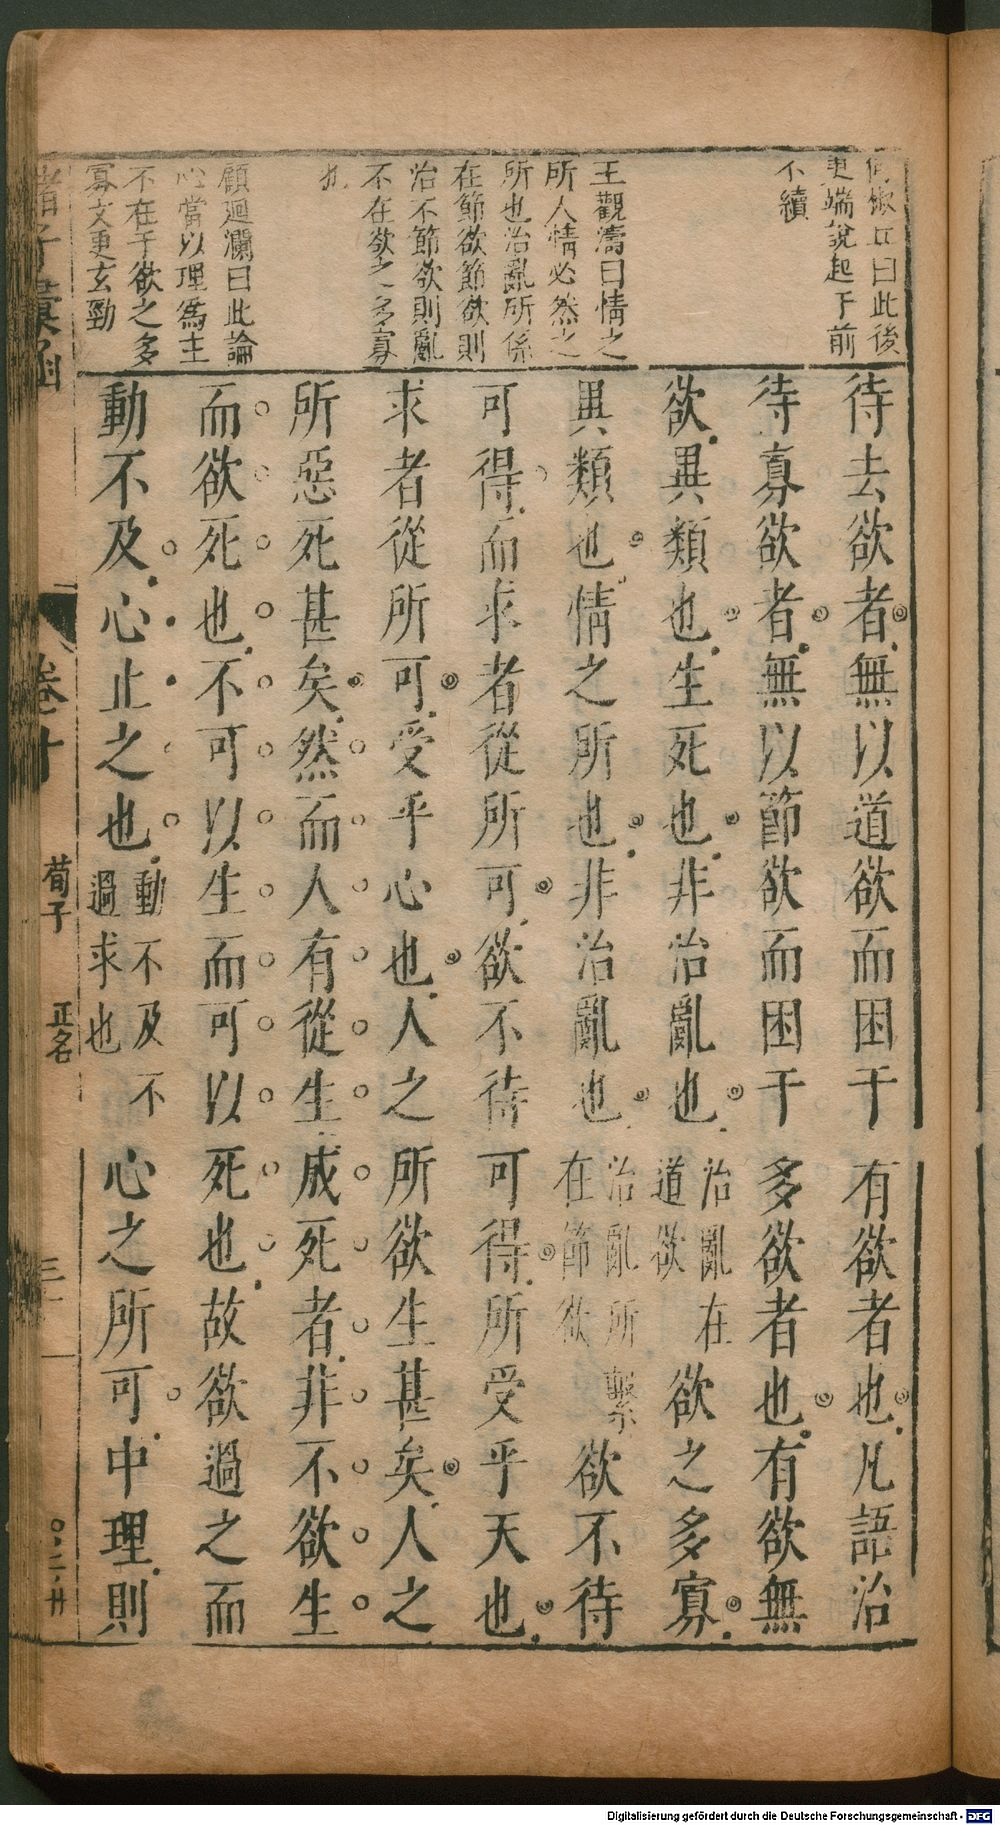 曰此後
更端說起于前
不續
王觀濤曰情之
所人情必然之
所也治亂所係
在節欲節欲則
治不節欲則亂
不在欲之多寡
也
顧迴瀾曰此論
心當以理為主
不在于欲之多
寡文更玄勁
待去欲者無以道欲而困于有欲者也凡語治
待寡欲者無以節欲而困于多欲者也有欲無
欲異類也生死也非治亂也治亂在道欲欲之多寡
異類也情之所也非治亂也治亂所繫在節欲欲不待
可得而求者從所可欲不待可得所受乎天也
求者從所可受乎心也人之所欲生甚矣人之
所惡死甚矣然而人有從生成死者非不欲生
而欲死也不可以生而可以死也故欲過之而
動不及心止之也動不及不過求也心之所可中理則
諸子彙函
卷十
荀子
正名
Digitalisierung gefördert durch die Deutsche Forschungsgemeinschaft - DFG